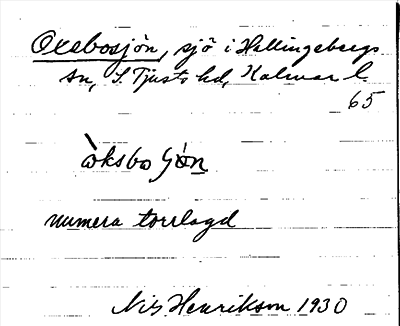 Oxebosjön, sjö i Hallingebergs
sn, S. Tjusts hd, Kalmar l.
65
òksbo ʃön
numera torrlagd
Nils Henrikson 1930